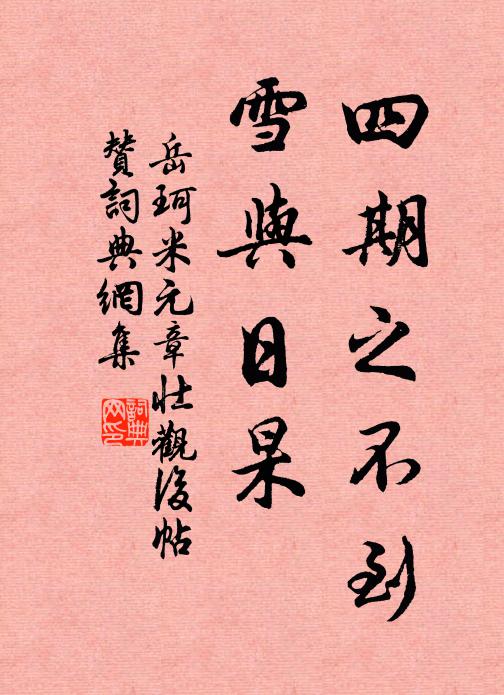 四期之不到
雪與日杲
岳珂米元章壯觀後帖
贊詞典網集
詞典網印